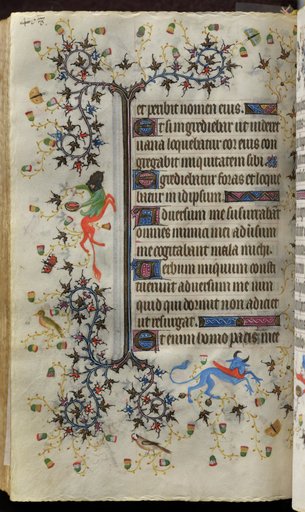 et peribit nomen eius.
Et si ingrediebatur ut videret
vana loquebatur cor eius con
gregabit iniquitatem sibi.
Egrediebatur foras et loque
batur in idipsum.
Adversum me susurrabāt
omnes inimici mei adūsum
me cogitabant mala michi.
Verbum iniquum consti
tuerunt adversum me num
quid qui dormit non adiciet
ut resurgat.
Etenim homo pacis mee